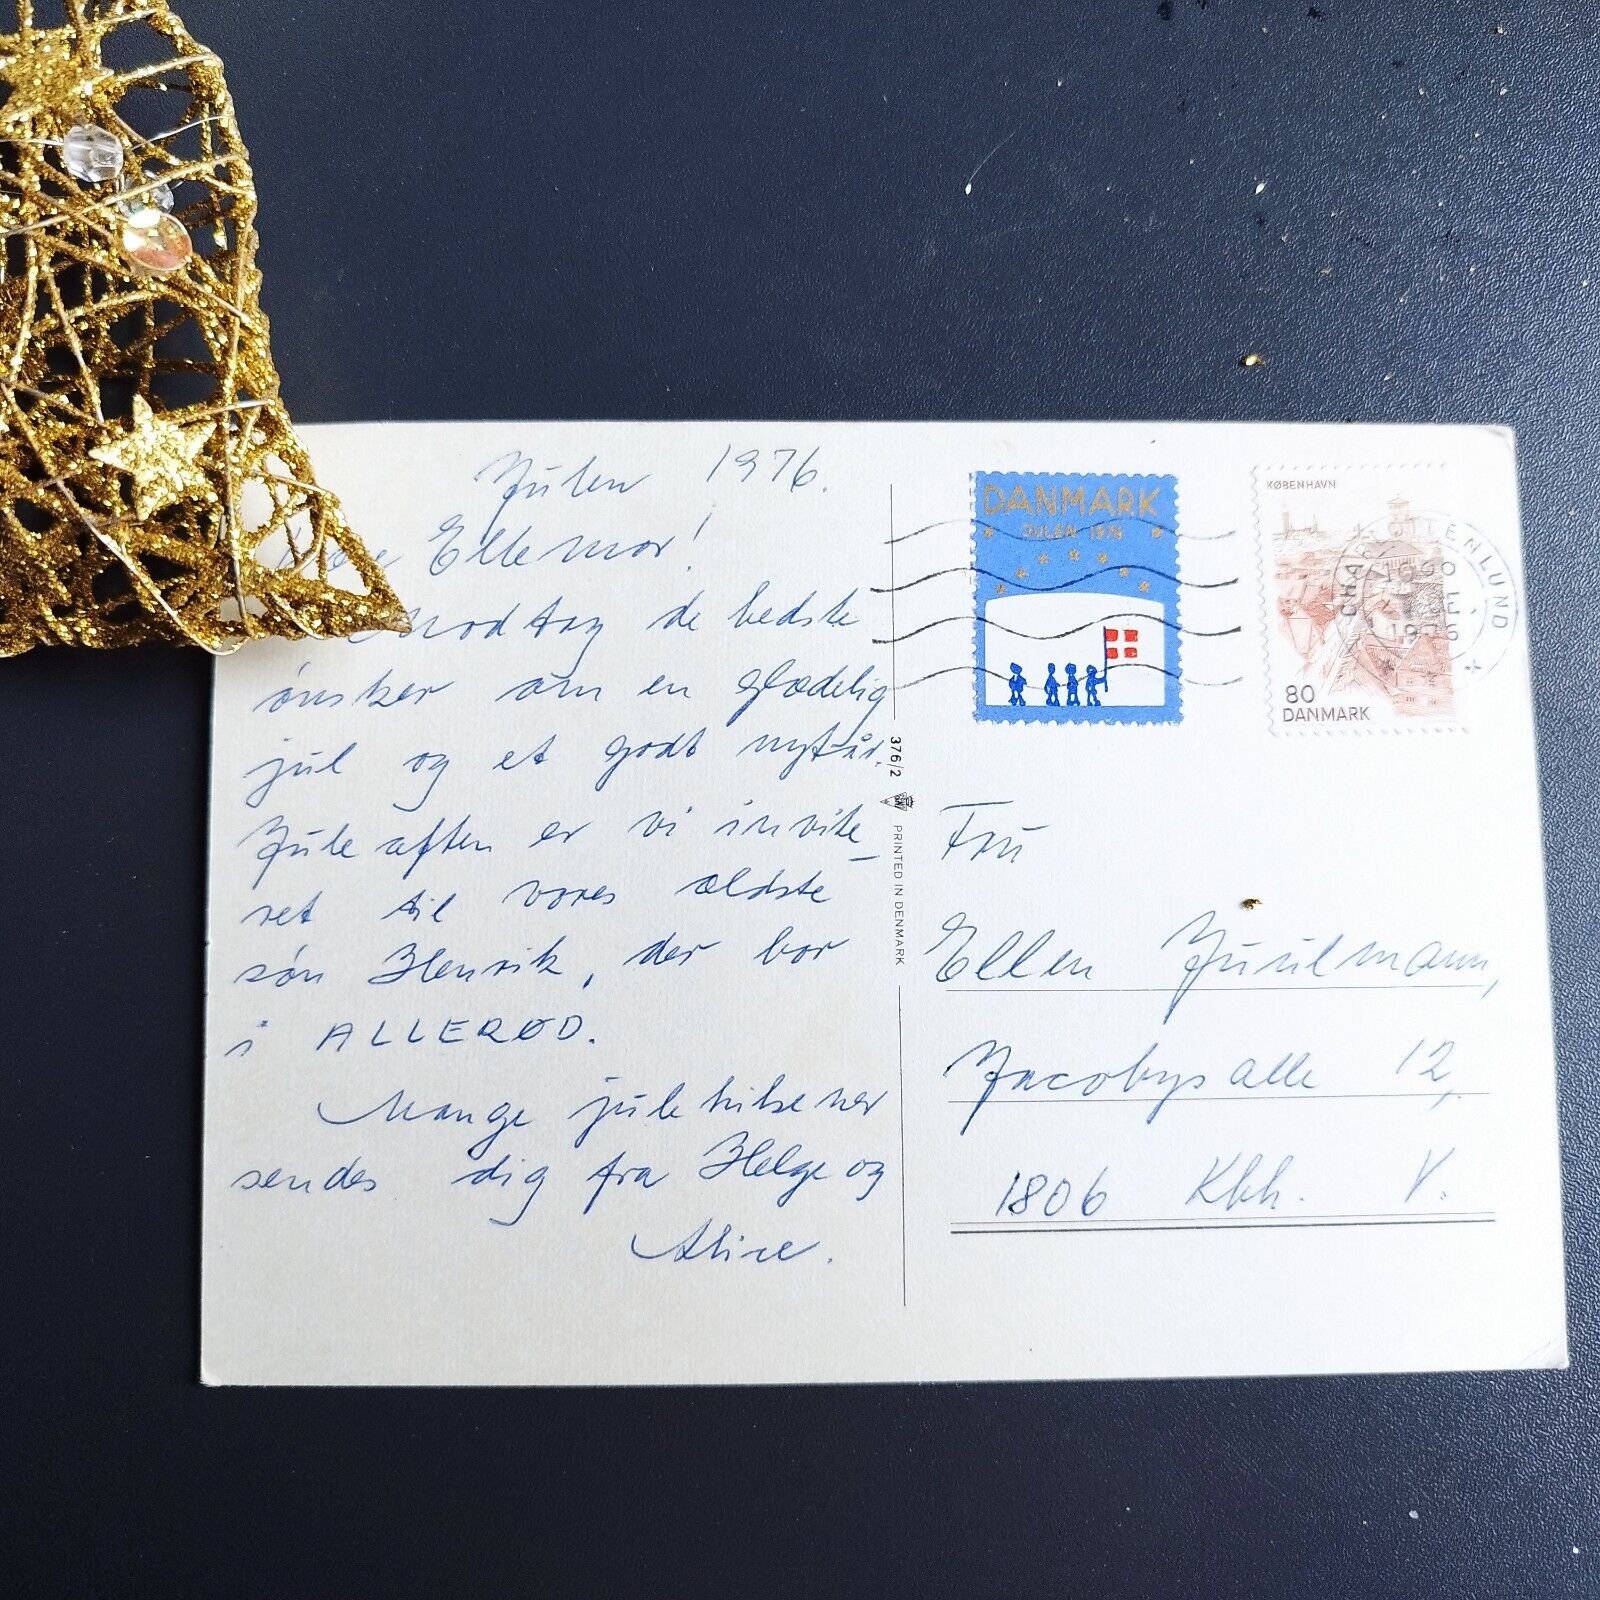 Julen 1976.
Kære Ellemor!
Modtag de bedste
ønsker om en glædelig
jul og et godt nytår.
Juleaften er vi invite-
ret til vores ældste
søn Henrik, der bor
i ALLERØD.
Mange julehilsener
sendes dig fra Helge og
Alice.
376/2
PRINTED IN DENMARK
DANMARK
JULEN 1976
KØBENHAVN
80
DANMARK
CHARLOTTENLUND
Fru
Ellen Juulmann,
Jacobys alle 12,
1806 Kbh. V.